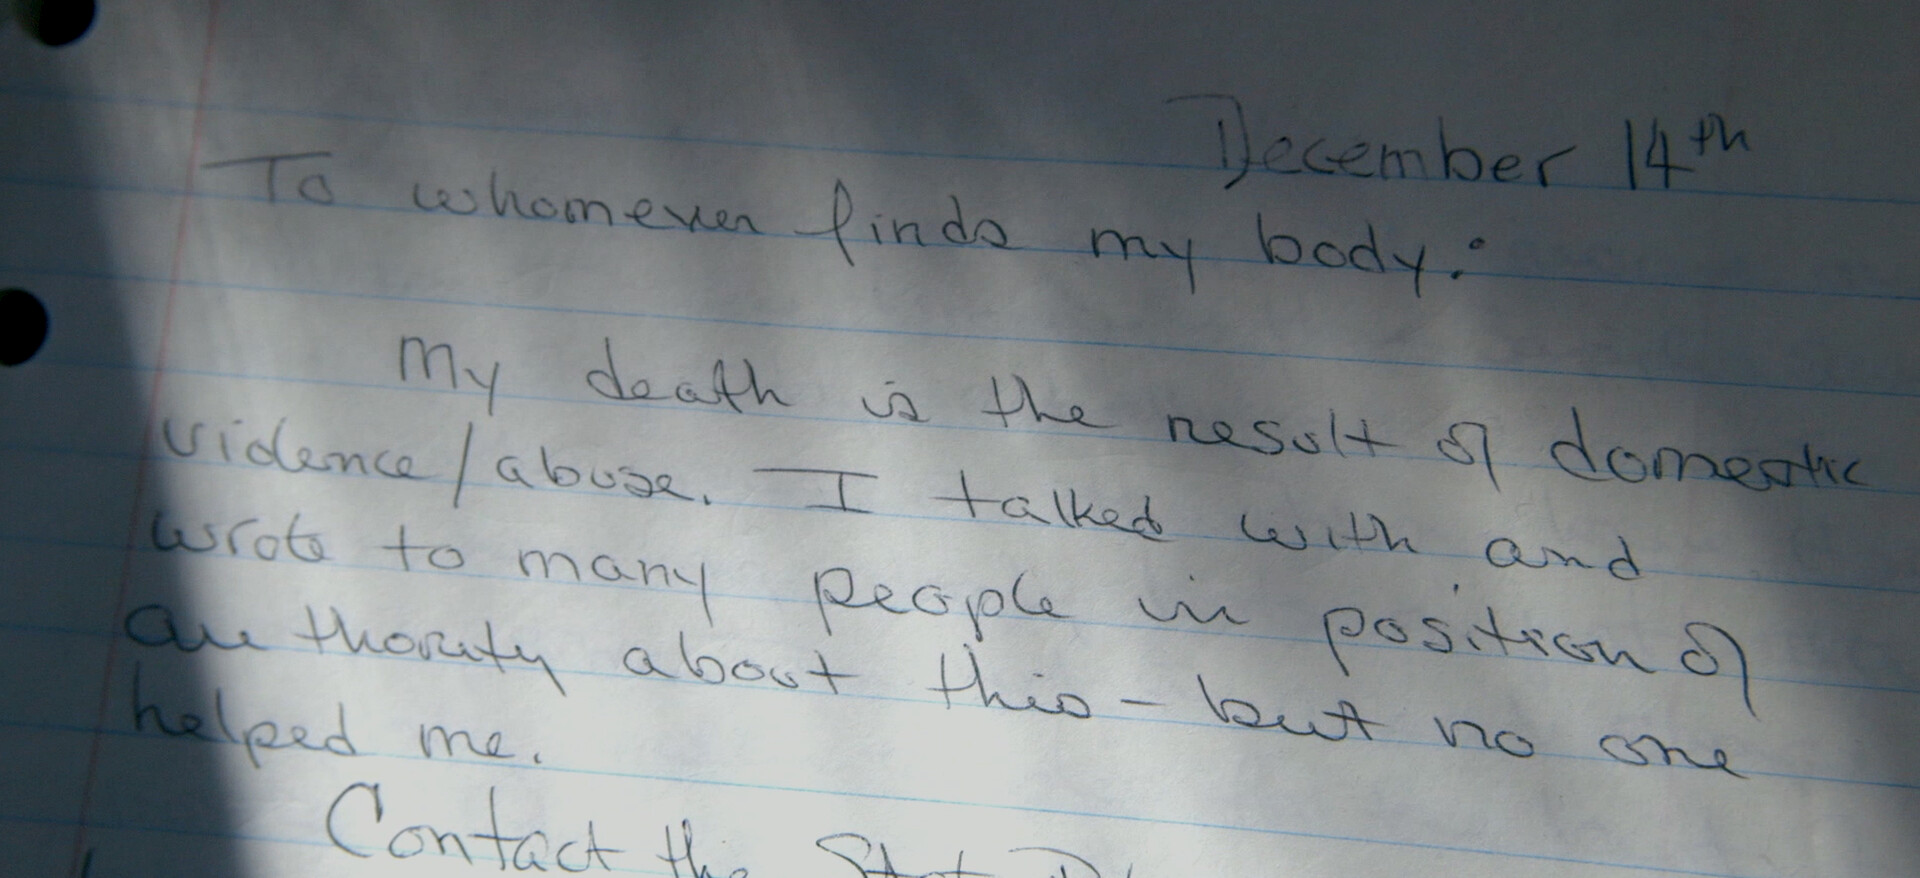 December 14th
To whomever finds my body:
My death is the result of domestic
violence/abuse. I talked with and
wrote to many people in position of
authority about this - but no one
helped me.
Contact the